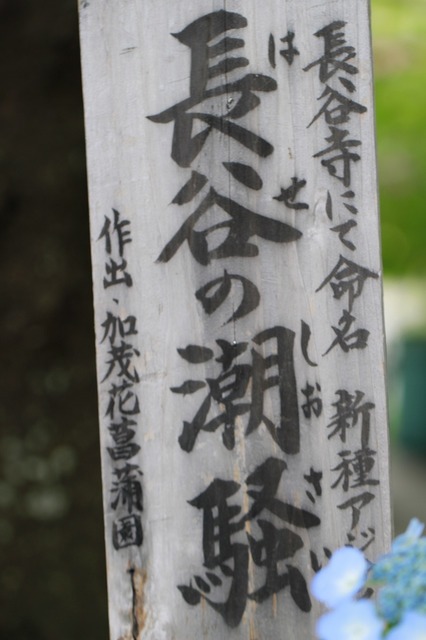 長谷寺にて命名 新種アジ
はせ しおさい
長谷の潮騒
作出・加茂花菖蒲園